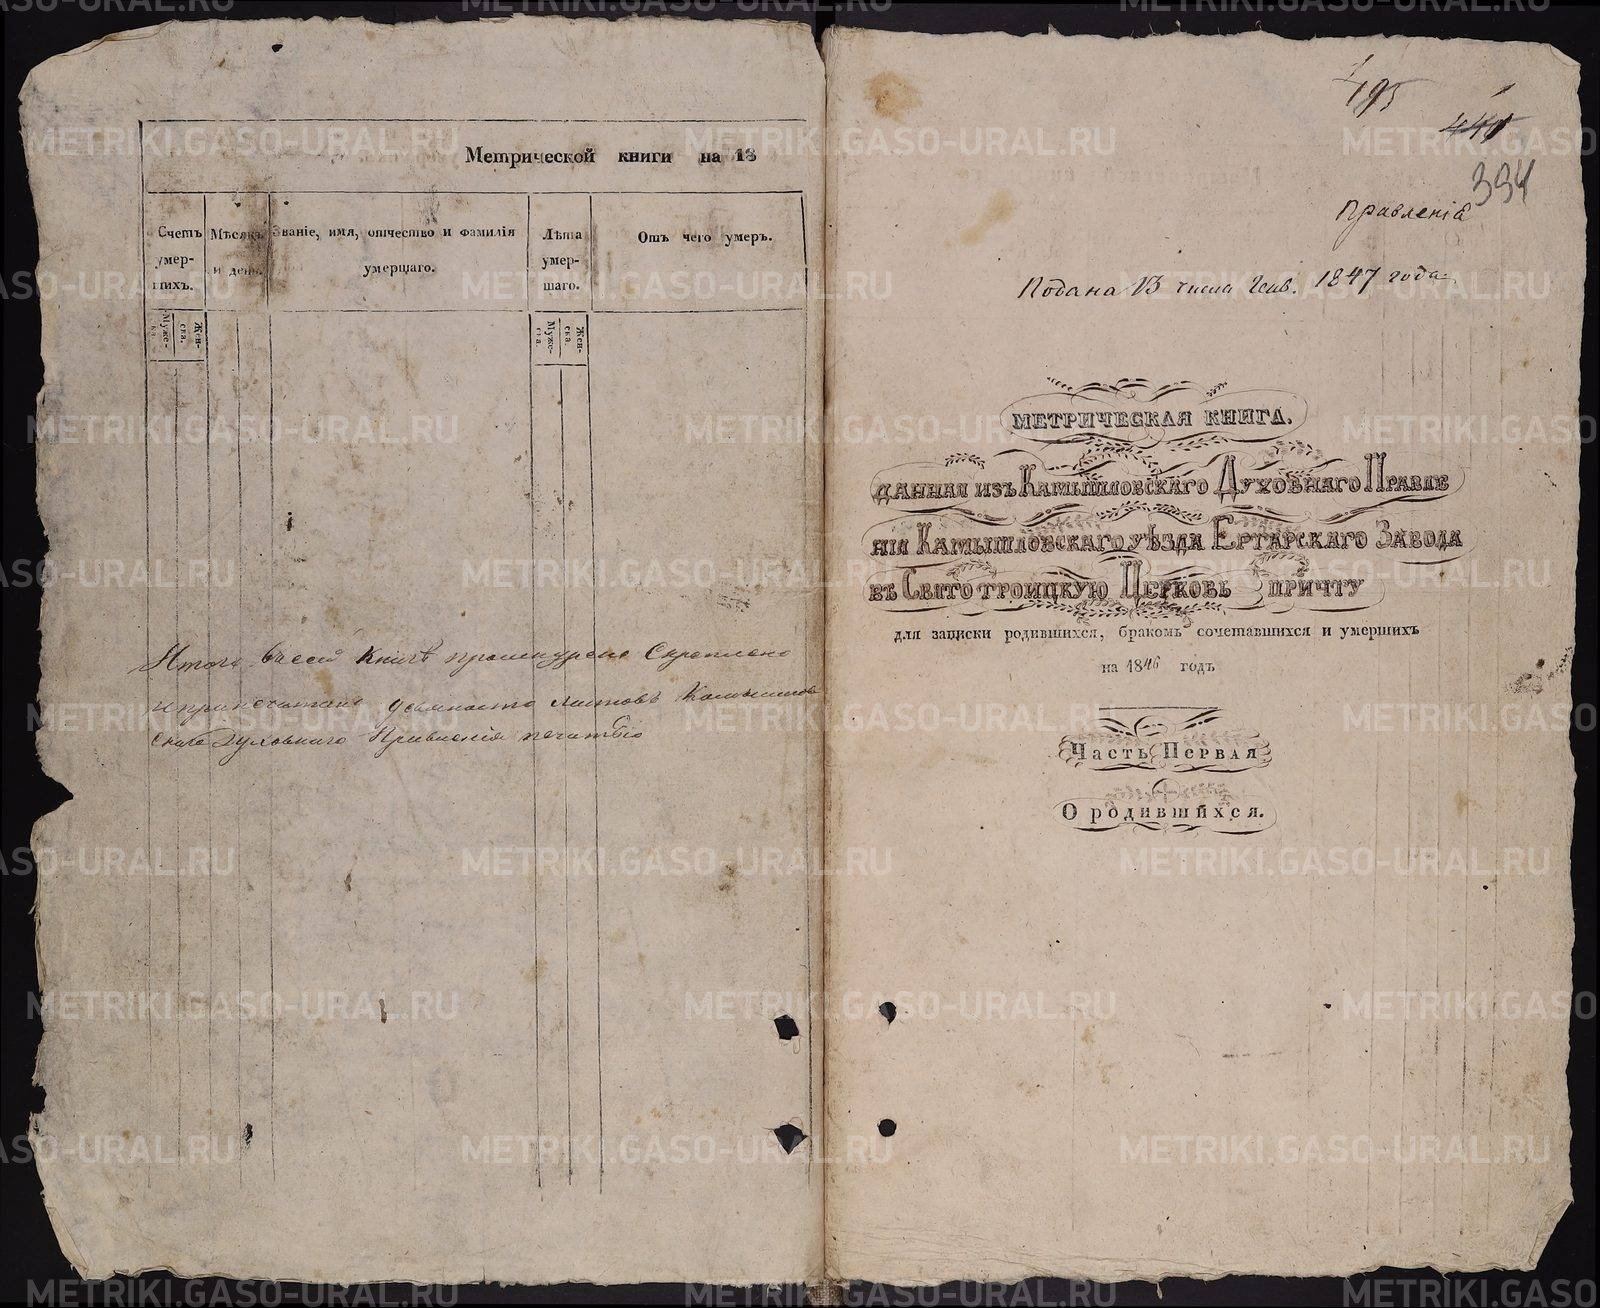 Метрической книги на 18
Счетъ умер- шихъ.
Мѣсяцъ и день.
Званіе, имя, отчество и фамилія умершаго.
Лѣта умер- шаго.
Отъ чего умеръ.
Муже- ска.
Жен- ска.
Муже- ска.
Жен- ска.
Итого въ сей Книгѣ прошнуровано Скреплено
и припечатано листовъ Камышлов
скаго Духовнаго Правленія печатью
195
441
334
Правленіе
Подана 13 числа Генв. 1847 года.
МЕТРИЧЕСКАЯ КНИГА,
ДАННАЯ ИЗЪ КАМЫШЛОВСКАГО ДУХОВНАГО ПРАВЛЕ
НІЯ КАМЫШЛОВСКАГО УѢЗДА ЕРТАРСКАГО ЗАВОДА
ВЪ СВЯТО ТРОИЦКУЮ ЦЕРКОВЬ ПРИЧТУ
для записки родившихся, бракомъ сочетавшихся и умершихъ
на 1846 годъ
ЧАСТЬ ПЕРВАЯ
О РОДИВШИХСЯ.
METRIKI.GASO-URAL.RU